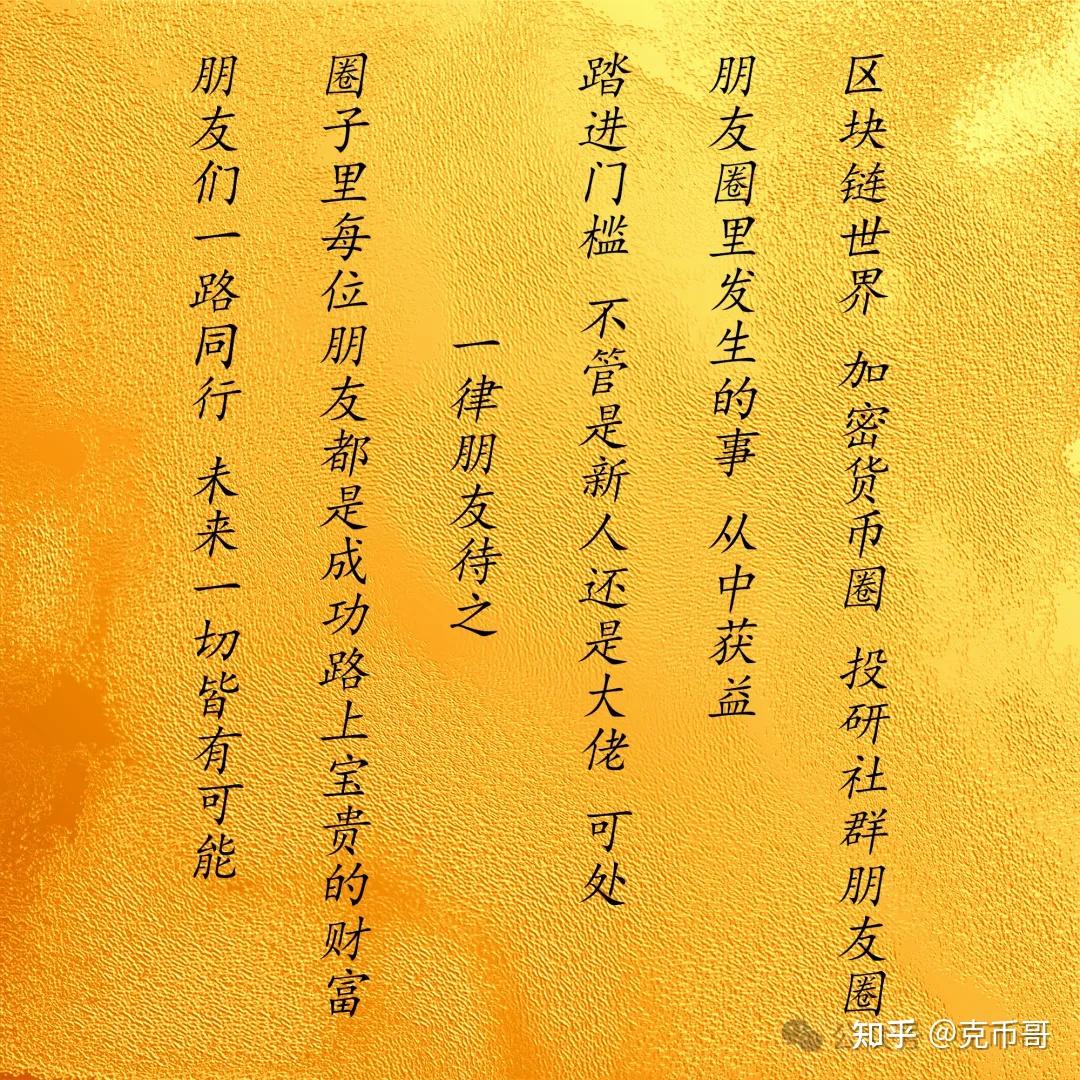 区块链世界 加密货币圈 投研社群朋友圈
朋友圈里发生的事 从中获益
踏进门槛 不管是新人还是大佬 可处
一律朋友待之
圈子里每位朋友都是成功路上宝贵的财富
朋友们一路同行 未来一切皆有可能
知乎 @克币哥